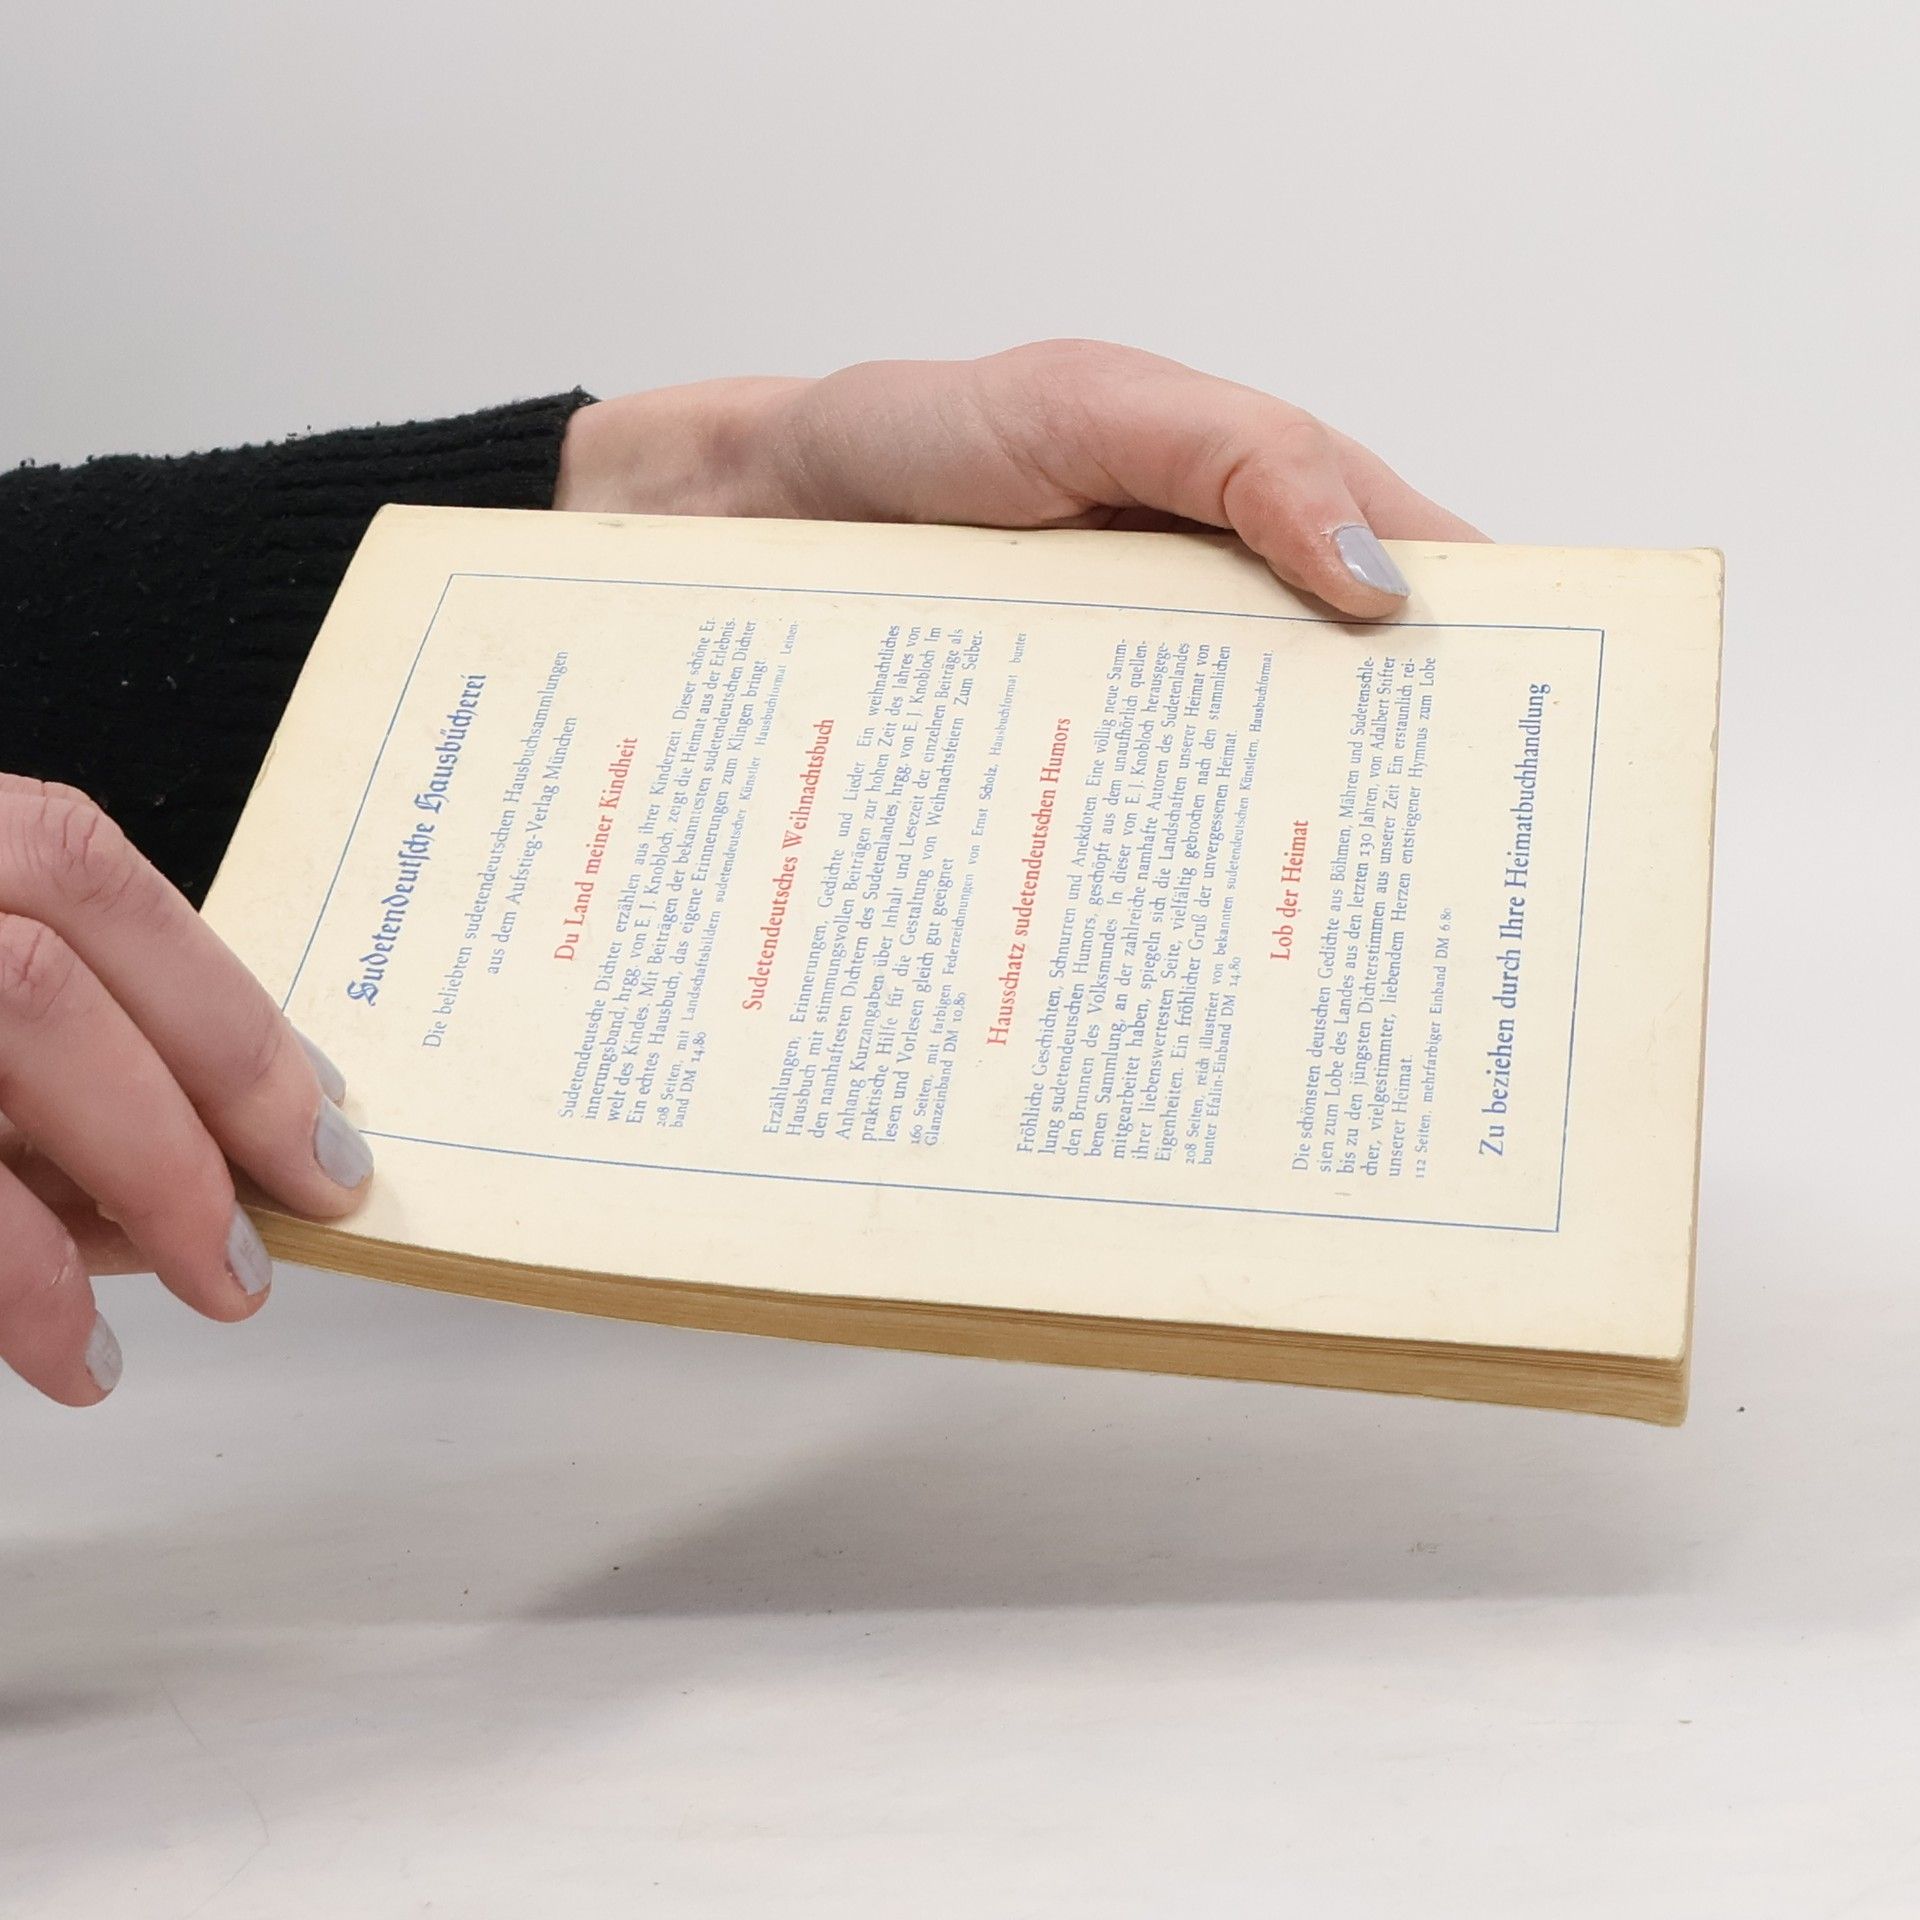 Sudetendeutsche Hausbücherei
Die beliebten sudetendeutschen Hausbuchsammlungen
aus dem Aufstieg-Verlag München
Du Land meiner Kindheit
Sudetendeutsche Dichter erzählen aus ihrer Kinderzeit. Dieser schöne Er-
innerungsband, hrgg. von E. J. Knobloch, zeigt die Heimat aus der Erlebnis-
welt des Kindes. Mit Beiträgen der bekanntesten sudetendeutschen Dichter.
Ein echtes Hausbuch, das eigene Erinnerungen zum Klingen bringt.
208 Seiten, mit Landschaftsbildern sudetendeutscher Künstler Hausbuchformat Leinen-
band DM 14,80
Sudetendeutsches Weihnachtsbuch
Erzählungen, Erinnerungen, Gedichte und Lieder Ein weihnachtliches
Hausbuch mit stimmungsvollen Beiträgen zur hohen Zeit des Jahres von
den namhaftesten Dichtern des Sudetenlandes, hrgg. von E. J. Knobloch Im
Anhang Kurzangaben über Inhalt und Lesezeit der einzelnen Beiträge als
praktische Hilfe für die Gestaltung von Weihnachtsfeiern Zum Selber-
lesen und Vorlesen gleich gut geeignet
160 Seiten, mit farbigen Federzeichnungen von Ernst Scholz, Hausbuchformat bunter
Glanzeinband DM 10,80
Hausschatz sudetendeutschen Humors
Fröhliche Geschichten, Schnurren und Anekdoten Eine völlig neue Samm-
lung sudetendeutschen Humors, geschöpft aus dem unaufhörlich quellen-
den Brunnen des Volksmundes In dieser von E. J. Knobloch herausgege-
benen Sammlung, an der zahlreiche namhafte Autoren des Sudetenlandes
mitgearbeitet haben, spiegeln sich die Landschaften unserer Heimat von
ihrer liebenswertesten Seite, vielfältig gebrochen nach den stammlichen
Eigenheiten. Ein fröhlicher Gruß der unvergessenen Heimat.
208 Seiten, reich illustriert von bekannten sudetendeutschen Künstlern, Hausbuchformat,
bunter Efalin-Einband DM 14.80
Lob der Heimat
Die schönsten deutschen Gedichte aus Böhmen, Mähren und Sudetenschle-
sien zum Lobe des Landes aus den letzten 130 Jahren, von Adalbert Stifter
bis zu den jüngsten Dichterstimmen aus unserer Zeit Ein erstaunlich rei-
cher, vielgestimmter, liebendem Herzen entstiegener Hymnus zum Lobe
unserer Heimat.
112 Seiten, mehrfarbiger Einband DM 6.80
Zu beziehen durch Ihre Heimatbuchhandlung